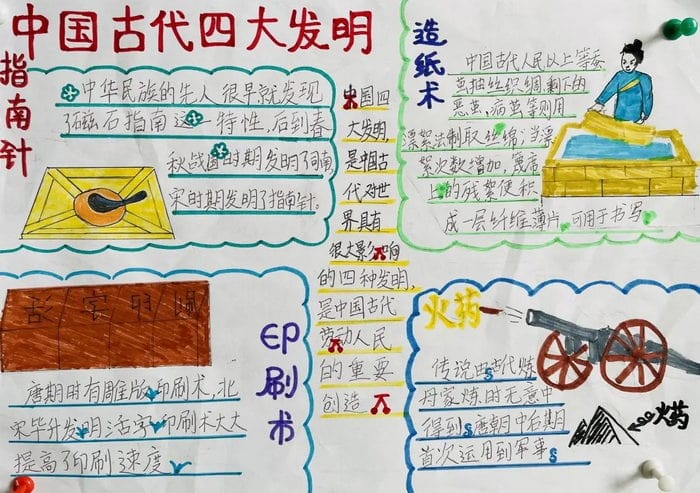 中国古代四大发明
指南针
中华民族的先人很早就发现
了磁石指南这一特性,后到春
秋战国时期发明了司南,
宋时期发明了指南针。
中国四
大发明,
是中国古
代对世
界具有
很大影响
的四种发明,
是中国古代
劳动人民
的重要
创造
造纸术
中国古代人民以上等蚕
茧抽丝织绸,剩下的
恶茧,病茧等则用
漂絮法制取丝绵;当漂
絮次数增加,篾席
上的残絮便积
成一层纤维薄片,可用于书写
印刷术
唐期时有雕版印刷术,北
宋毕升发明活字印刷术大大
提高了印刷速度
火药
传说由古代炼
丹家炼时无意中
得到唐朝中后期
首次运用到军事
火药